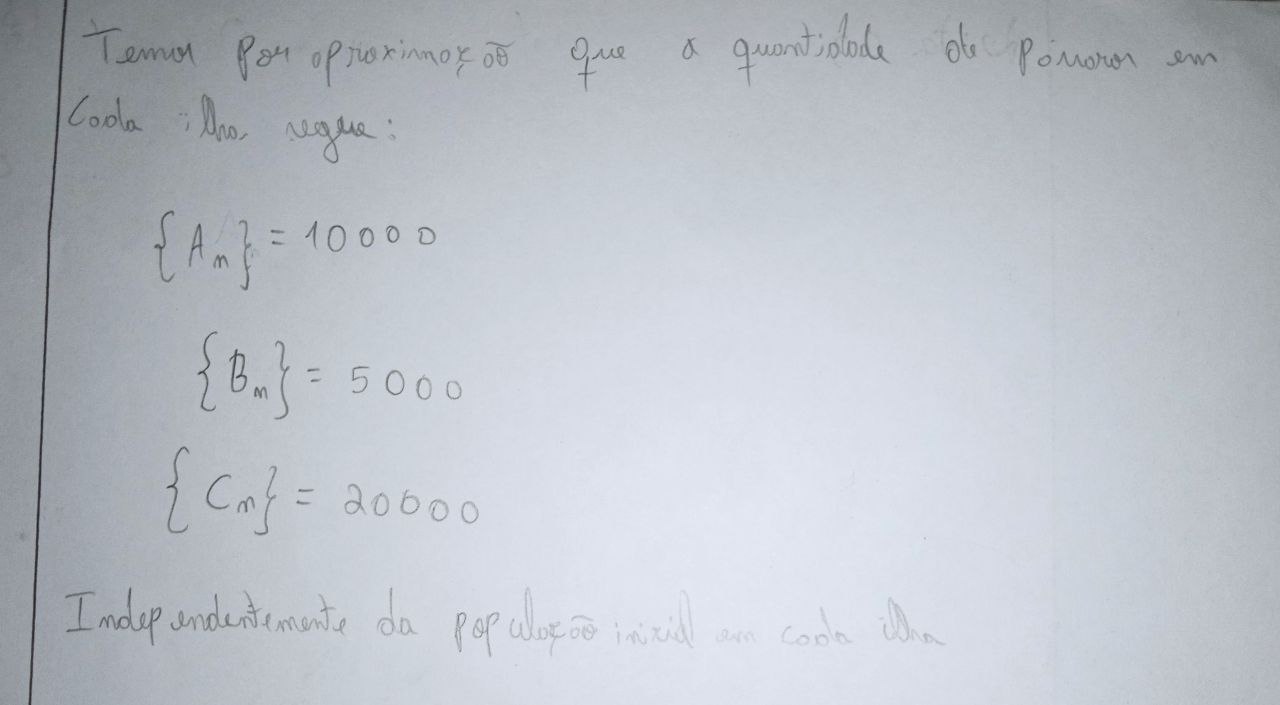 Temos por aproximação que a quantidade de pássaros em
Cada ilha segue:
{A_n} = 10000
{B_n} = 5000
{C_n} = 20000
Independentemente da população inicial em cada ilha